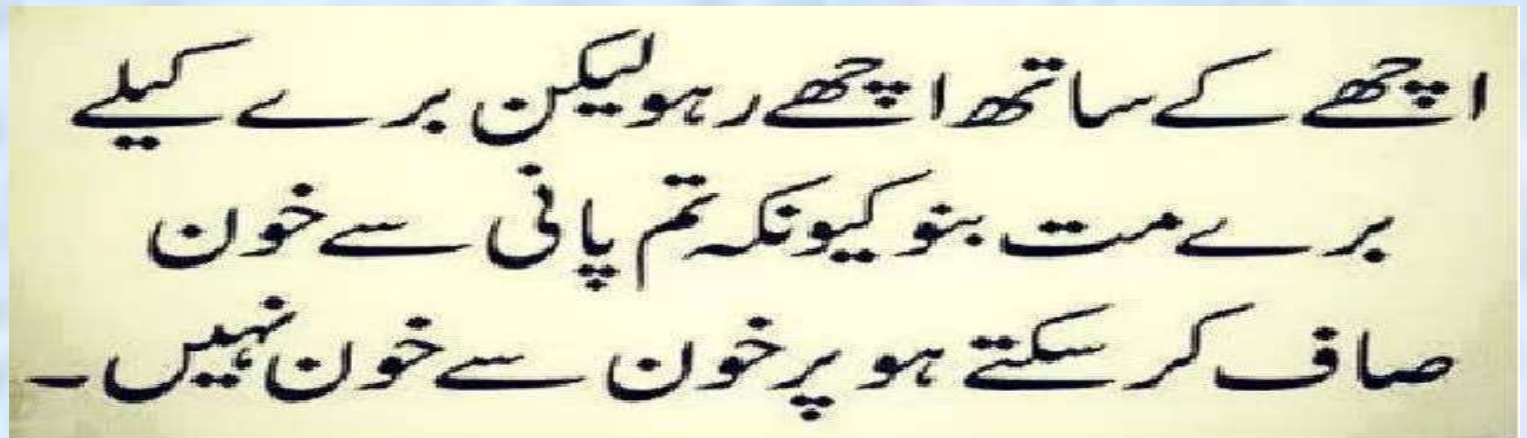 اچھے کے ساتھ اچھے رہو لیکن برے کیلے
برے مت بنو کیونکہ تم پانی سے خون
صاف کر سکتے ہو پر خون سے خون نہیں۔